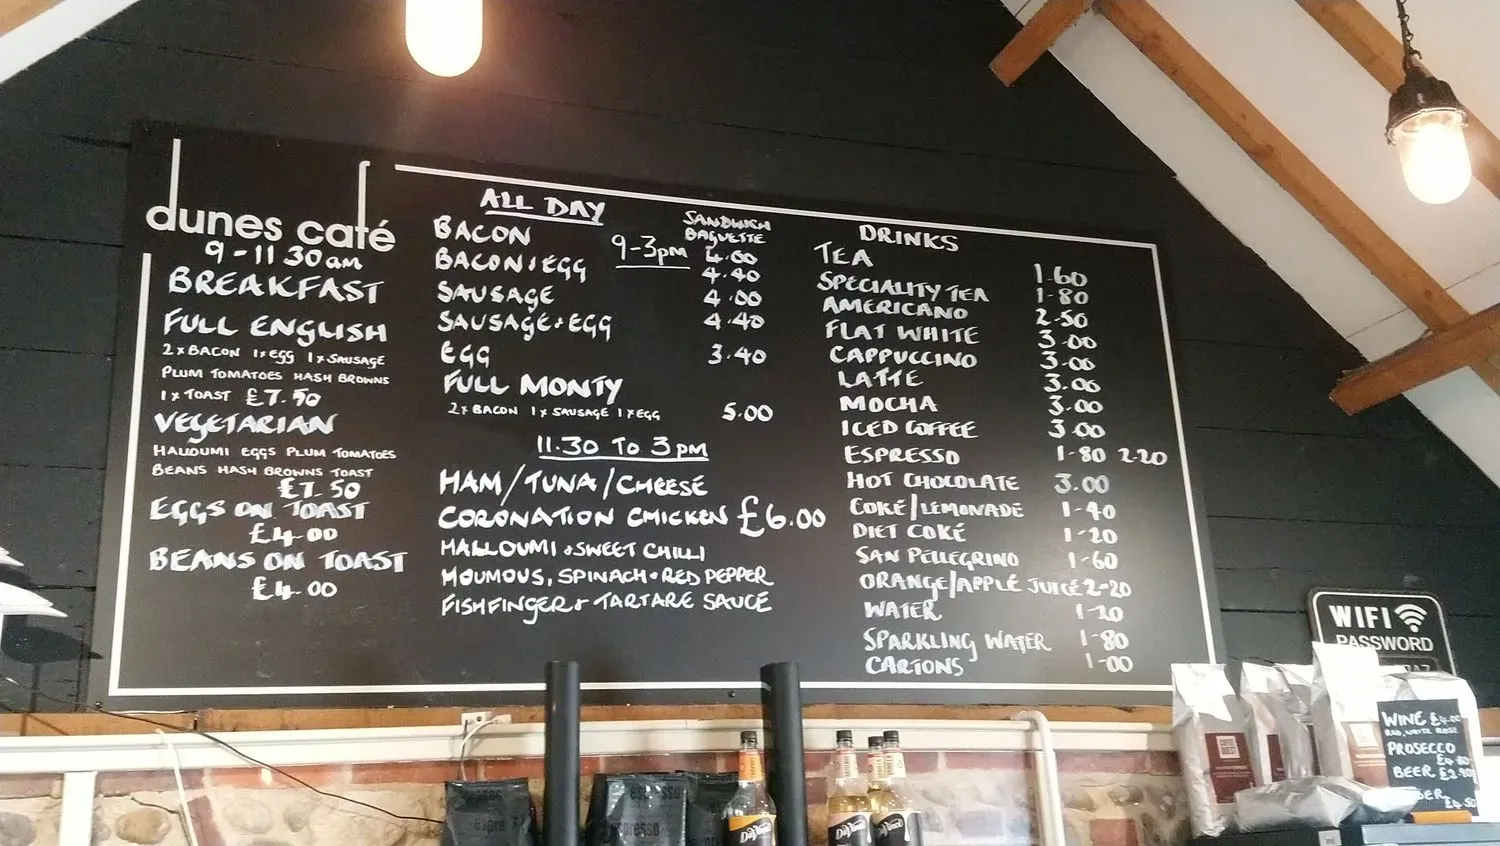 dunes café
9-11 30am
BREAKFAST
FULL ENGLISH
2x BACON 1x EGG 1x SAUSAGE
PLUM TOMATOES HASH BROWNS
1x TOAST £7.50
VEGETARIAN
HALLOUMI EGGS PLUM TOMATOES
BEANS HASH BROWNS TOAST
£7.50
EGGS ON TOAST
£4.00
BEANS ON TOAST
£4.00
ALL DAY
9-3pm
SANDWICH
BAGUETTE
BACON 4.00
BACON & EGG 4.40
SAUSAGE 4.00
SAUSAGE & EGG 4.40
EGG 3.40
FULL MONTY
2x BACON 1x SAUSAGE 1x EGG 5.00
11.30 TO 3pm
HAM/TUNA/CHEESE
CORONATION CHICKEN £6.00
HALLOUMI & SWEET CHILLI
HOUMOUS, SPINACH & RED PEPPER
FISHFINGER & TARTARE SAUCE
DRINKS
TEA 1-60
SPECIALITY TEA 1-80
AMERICANO 2-50
FLAT WHITE 3-00
CAPPUCCINO 3-00
LATTE 3-00
MOCHA 3-00
ICED COFFEE 3-00
ESPRESSO 1-80 2-20
HOT CHOCOLATE 3.00
COKE/LEMONADE 1-40
DIET COKE 1-20
SAN PELLEGRINO 1-60
ORANGE/APPLE JUICE 2-20
WATER 1-20
SPARKLING WATER 1-80
CARTONS 1-00
WIFI
PASSWORD
WINE £4.00
RED, WHITE ROSE
PROSECCO
£4.80
BEER £2.90
£4.50
espresso
DaVinci
DaVinci
DaVinci